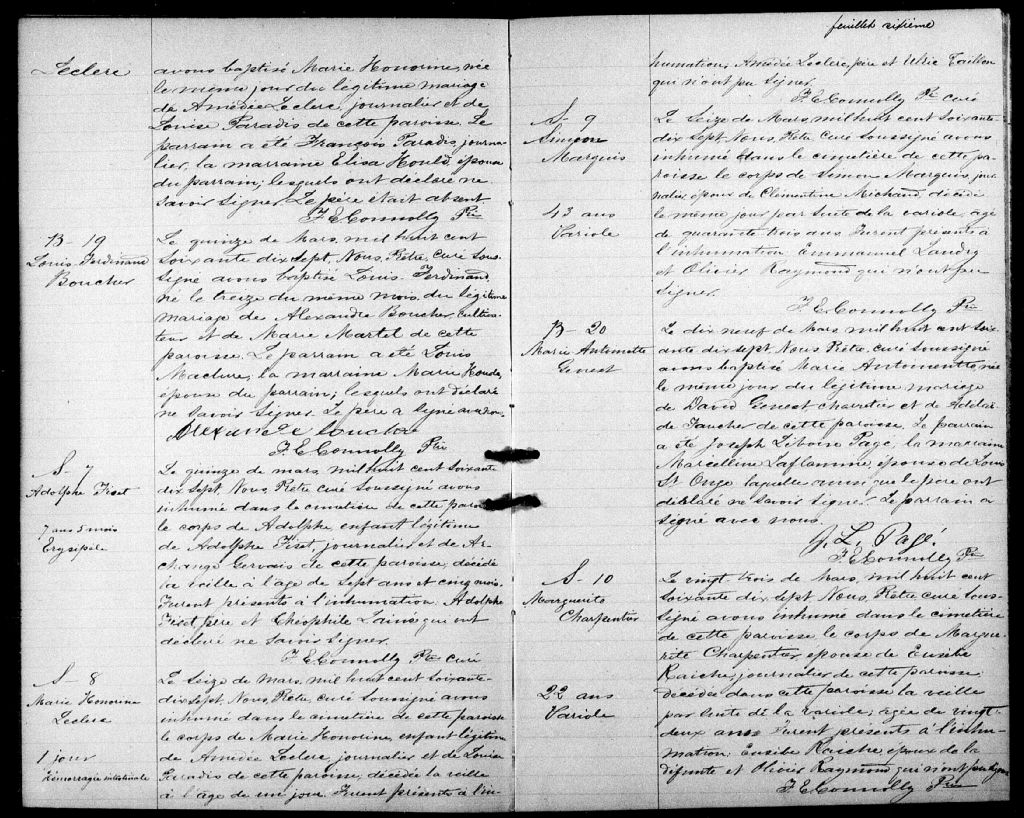 Leclerc
avons baptisé Marie Honorine, née
le même jour du légitime mariage
de Amédée Leclerc, journalier et de
Louise Paradis de cette paroisse. Le
parrain a été François Paradis, journa-
lier, la marraine Elisa Hould, épouse
du parrain; lesquels ont déclaré ne
savoir signer. Le père etait absent
F. E. Connolly Ptre
B- 19
Louis Ferdinand
Boucher
Le quinze de Mars, mil huit cent
soixante dix sept, Nous, Prêtre, curé sous-
signé avons baptisé Louis Ferdinand,
né le treize du même mois, du légitime
mariage de Alexandre Boucher, cultiva-
teur et de Marie Martel de cette
paroisse. Le parrain a été Louis
Maclure, la marraine Marie Houde,
épouse du parrain; lesquels ont déclaré
ne savoir signer. Le père a signé avec nous.
Alexandre Bouché
F. E. Connolly Ptre
S- 7
Adolphe Fiset
7 ans 5 mois
Erysipèle
Le quinze de mars, mil huit cent soixante
dix sept, Nous, Prêtre, curé soussigné avons
inhumé dans le cimetière de cette paroisse
le corps de Adolphe enfant légitime
de Adolphe Fiset, journalier et de Ar-
change Gervais de cette paroisse, décédé
la veille à l'âge de sept ans et cinq mois.
Furent présents à l'inhumation, Adolphe
Fiset, père et Théophile Lainé qui ont
déclaré ne savoir signer.
F. E. Connolly Ptre curé
S- 8
Marie Honorine
Leclerc
1 jour
Hémorragie intestinale
Le seize de mars, mil huit cent soixante-
dix sept, Nous, Prêtre, curé soussigné avons
inhumé dans le cimetière de cette paroisse
le corps de Marie Honorine, enfant légitime
de Amédée Leclerc, journalier et de Louise
Paradis de cette paroisse, décédée la veille
à l'âge de un jour. Furent présents à l'in-
feuillet sixième
humation, Amédée Leclerc, père et Ulric Taillon
qui n'ont pu signer.
F. E. Connolly Ptre curé
S- 9
Simeon
Marquis
43 ans
Variole
Le Seize de Mars, mil huit cent soixante-
dix sept, Nous, Prêtre curé soussigné avons
inhumé dans le cimetière de cette pa-
roisse le corps de Simon Marquis, jour-
nalier, époux de Clémentine Michaud, décédé
le même jour par suite de la variole, agé
de quarante trois ans. Furent présents à
l'inhumation Emmanuel Landry
et Olivier Raymond qui n'ont pu
signer.
F. E. Connolly Ptre
B- 20
Marie Antoinette
Genest
Le dix neuf de Mars mil huit cent soix-
ante dix sept, Nous Prêtre, curé soussigné
avons baptisé Marie Antoinette, née
le même jour du légitime mariage
de David Genest charretier et de Adelaï-
de Faucher de cette paroisse. Le parrain
a été Joseph Liboire Pagé, la marraine
Marcelline Laflamme, épouse de Louis
St Onge laquelle ainsi que le père ont
déclaré ne savoir signer. Le parrain a
signé avec nous.
J. L. Pagé.
F. E. Connolly Ptre
S- 10
Marguerite
Charpentier
22 ans
Variole
Le vingt trois de Mars, mil huit cent
soixante dix sept Nous, Prêtre curé sous-
signé avons inhumé dans le cimetière
de cette paroisse le corps de Margue-
rite Charpentier épouse de Eusèbe
Raiche, journalier de cette paroisse,
décédée dans cette paroisse la veille
par suite de la variole, âgée de vingt-
deux ans. Furent présents à l'inhu-
mation Eusèbe Raiche époux de la
défunte et Olivier Raymond qui n'ont pu signer
F. E. Connolly Ptre